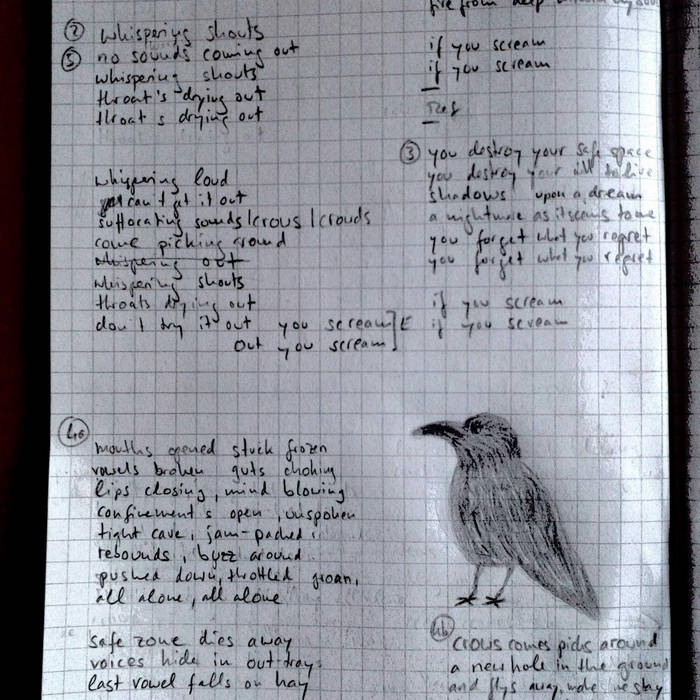 ② whispering shouts
⑤ no sounds coming out
whispering shouts
throat's drying out
throat s drying out
whispering loud
can't get it out
suffocating sounds/crows/crowds
come picking around
whispering out
whispering shouts
throats drying out
don't try it out you scream] E
out you scream
4a
mouths opened stuck frozen
vowels broken guts choking
lips closing, mind blowing
confinement s open, unspoken
tight cave, jam-packed
rebounds, buzz around
pushed down, throttled groan,
all alone, all alone
safe zone dies away
voices hide in out trays
last vowel falls on hay
fire from deep
if you scream
if you scream
Ref
③ you destroy your safe space
you destroy your will to live
shadows upon a dream
a nightmare as it seems to me
you forget what you regret
you forget what you regret
if you scream
if you scream
4b
crows comes picks around
a new hole in the ground
and flys away, stay